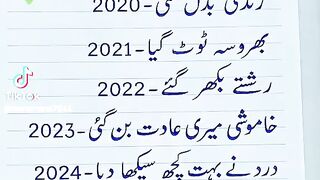 زندگی بدل گئی-2020
بھروسہ ٹوٹ گیا-2021
رشتے بکھر گئے-2022
خاموشی میری عادت بن گئی-2023
درد نے بہت کچھ سیکھا دیا-2024
TikTok